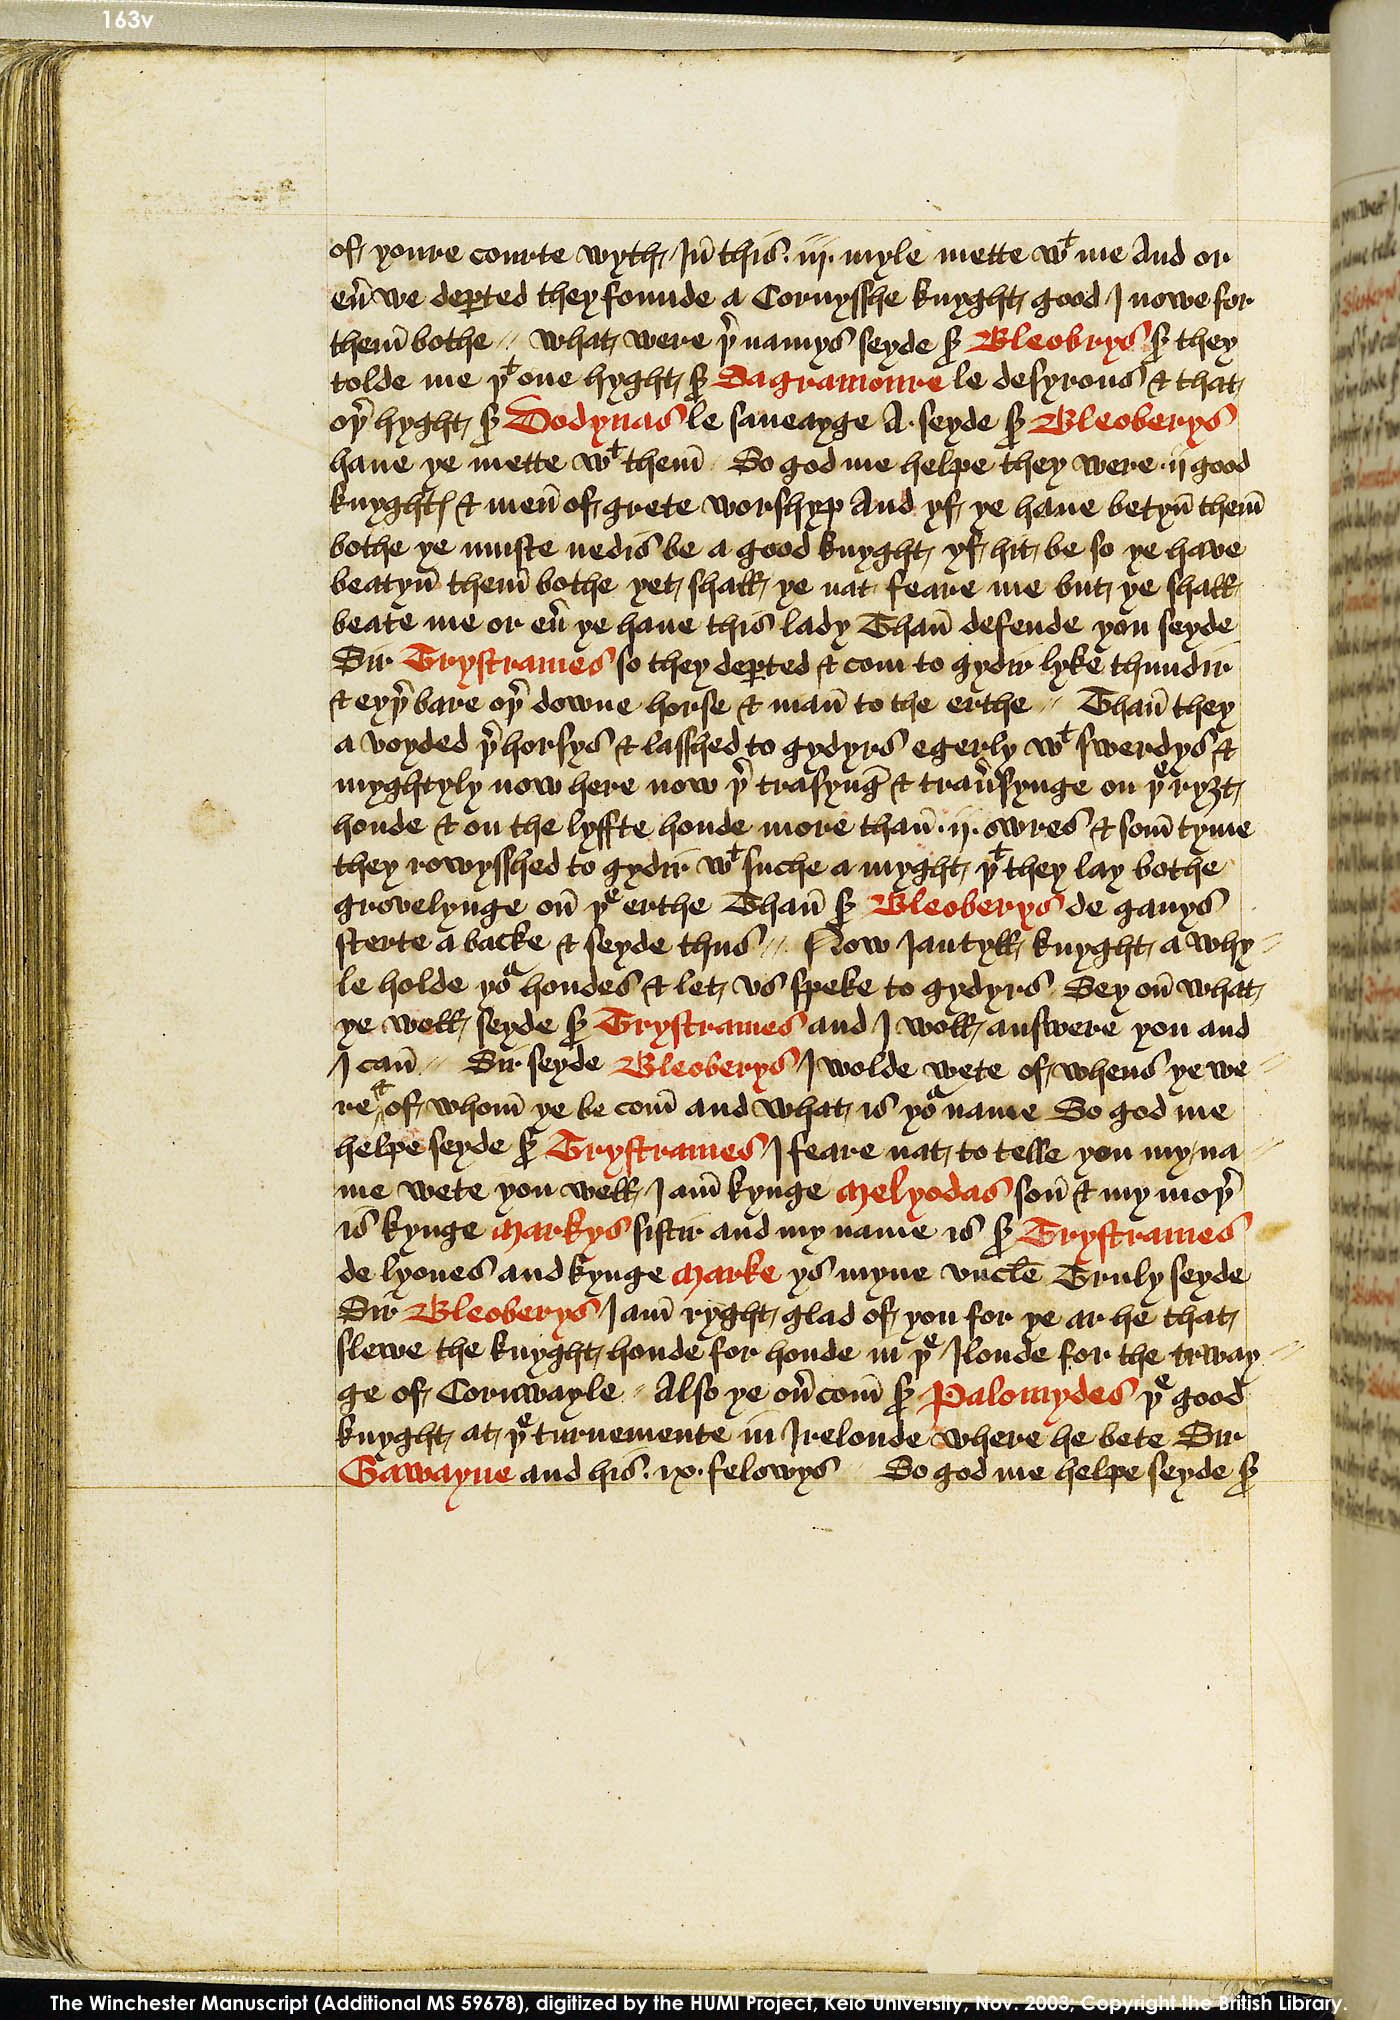 163v
of youre courte wyth Jn̄ this .iij. myle mette wt me And or
eū we deꝑted they founde a Cornysshe knyght good J nowe for
them̄ bothe // what were þr namys seyde Sr Bleobrys Sr they
tolde me þt one hyght Sr Sagramoure le desyrous & that
oþr hyght Sr Dodynas le saueayge A. seyde Sr Bleoberys
haue ye mette wt them̄ So god me helpe they were .ij good
knyghtꝭ & men̄ of grete worshyp And yf ye haue betyn̄ them̄
bothe ye muste nedis be a good knyght yf hit be so ye have
beatyn̄ them̄ bothe yet shall ye nat feare me but ye shall
beate me or eū ye haue this lady Than̄ defende you seyde
Sir Trystrames so they deꝑted & com to gydir lyke thundir
& eyþr bare oþr downe horse & man̄ to the erthe // Than̄ they
a voyded þr horsys & lasshed to gydyrs egerly wt swerdys &
myghtyly now here now þr trasynḡ & trau̾synge on þe ryȝt
honde & on the lyffte honde more than̄ .ij. owres & som̄ tyme
they rowysshed to gydir wt suche a myght þt they lay bothe
grovelynge on̄ þe erthe Than̄ Sr Bleoberys de ganys
sterte a backe & seyde thus // Now Jantyll knyght a why //
le holde yor hondes & let vs speke to gydyrs Sey on̄ what
ye woll seyde Sr Trystrames and J woll answere you and
J can̄ // Sir seyde Bleoberys J wolde wete of whens ye we //
re & of whom̄ ye be com̄ and what is yor name So god me
helpe seyde Sr Trystrames J feare nat to telle you my na //
me wete you well J am̄ kynge Melyodas son̄ & my moþr
is kynge Markys sistir and my name is Sr Trystrames
de lyones and kynge Marke ys myne vncle Truly seyde
Sir Bleoberys J am̄ ryght glad of you for ye ar he that
slewe the knyght honde for honde in þe Jlonde for the trway //
ge of Cornwayle // Also ye ou̾com̄ Sr Palomydes þe good
knyght at þe turnemente in Jrelonde where he bete Sir
Gawayne and his .ix. felowys // So god me helpe seyde Sr
The Winchester Manuscript (Additional MS 59678), digitized by the HUMI Project, Keio University, Nov. 2003; Copyright the British Library.